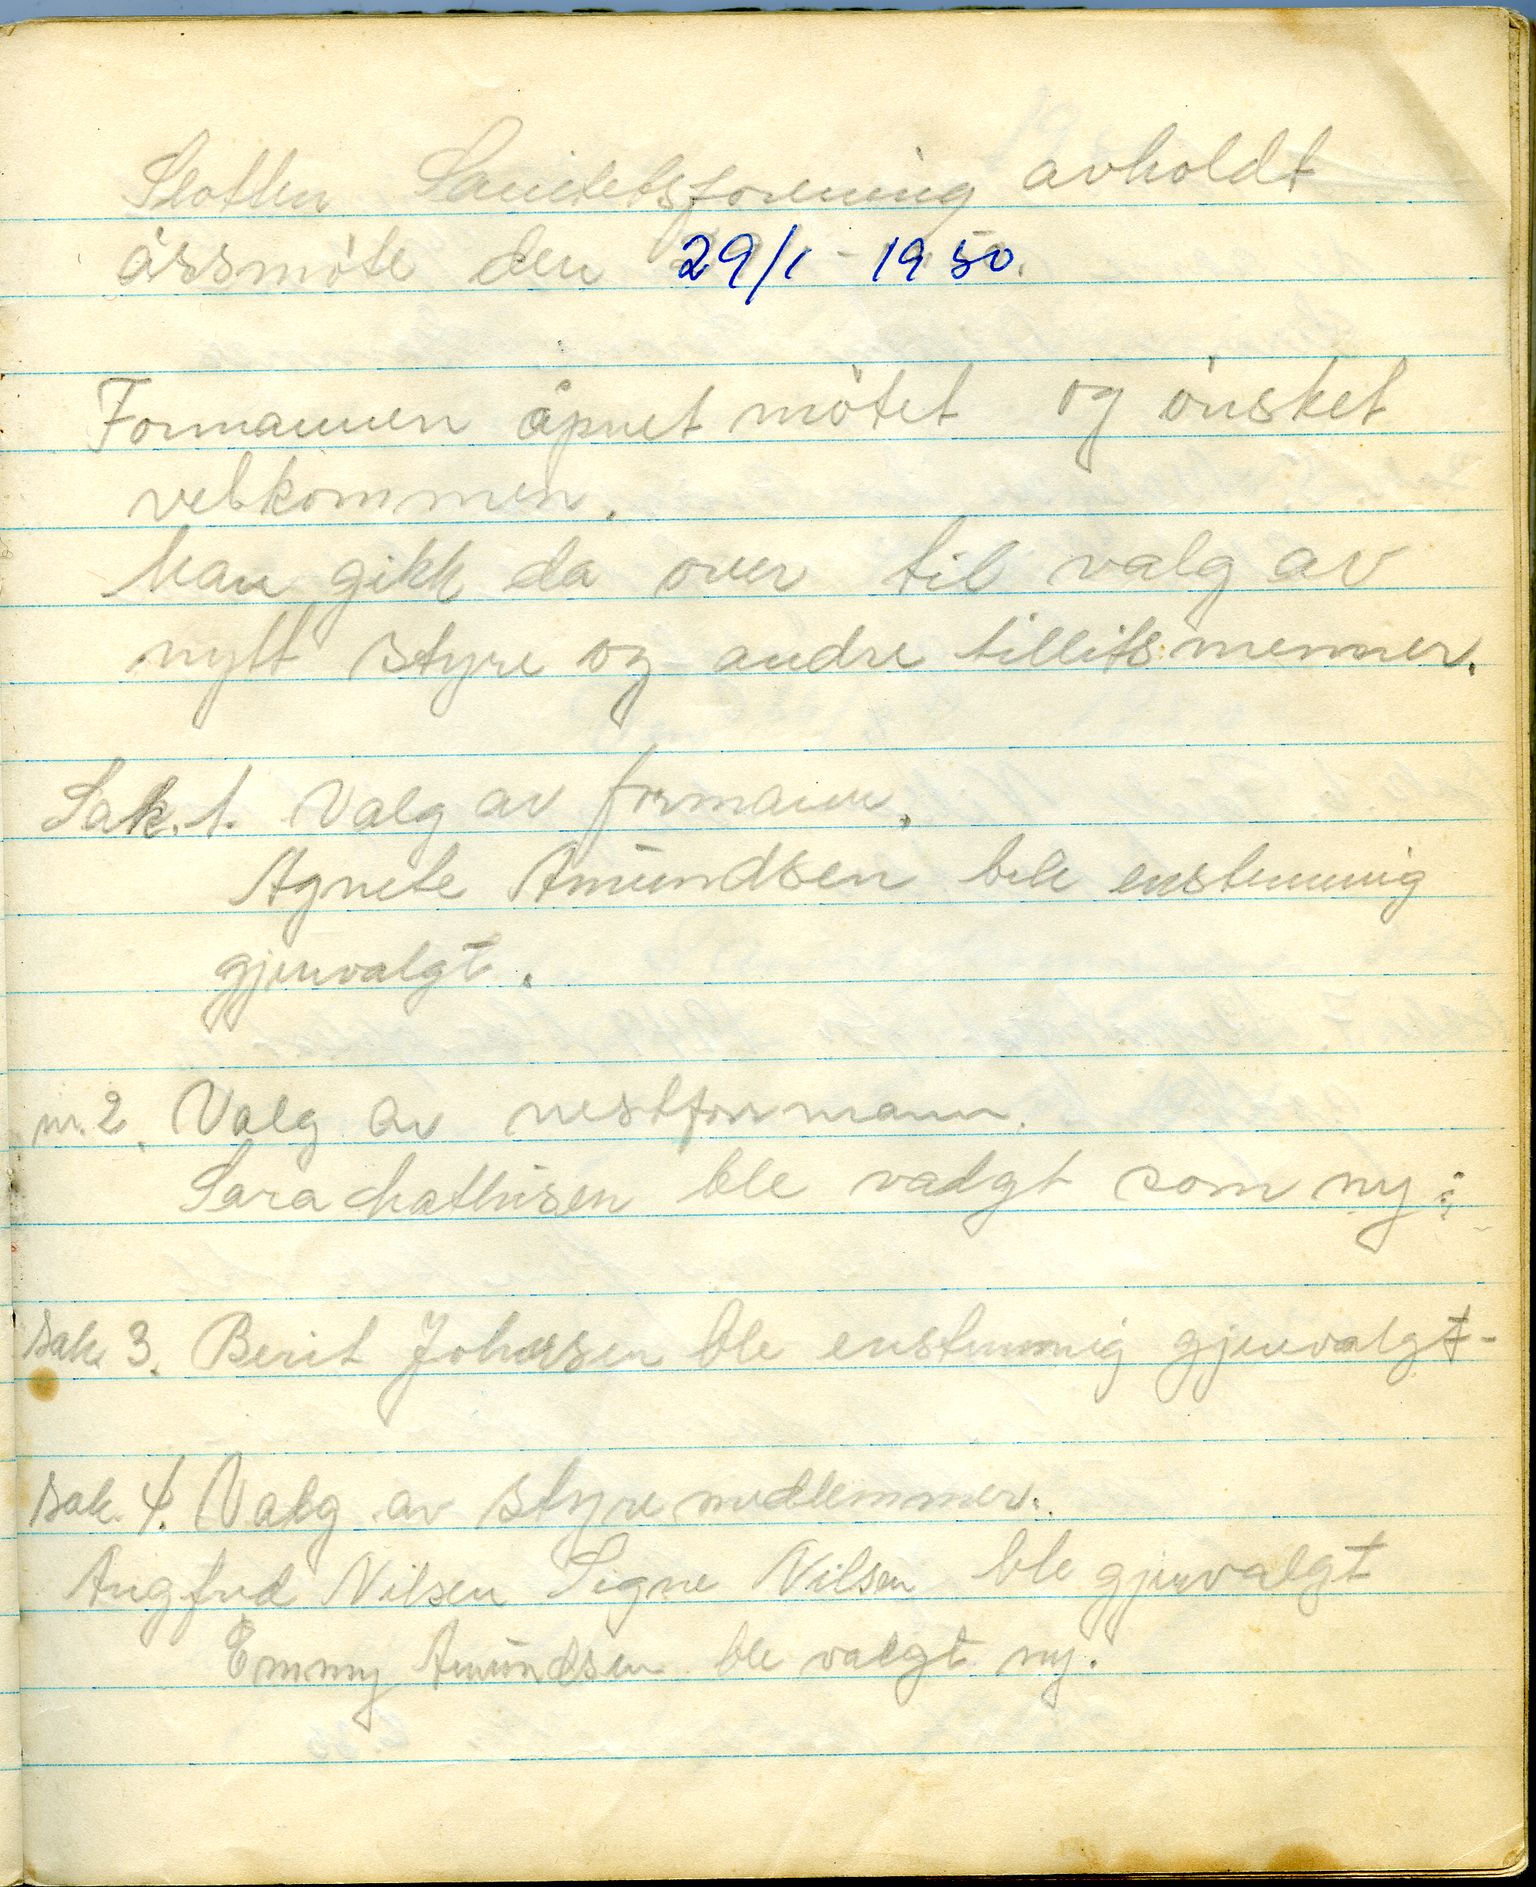 Slotten Sanitetsforening avholdt
årsmöte den 29/1 - 1950.
Formannen åpnet mötet og önsket
velkommen.
Man gikk da over til valg av
nytt styre og andre tillitsmenner.
Sak. 1. Valg av formann.
Agnete Amundsen ble enstemmig
gjenvalgt.
nr. 2. Valg av nestformann.
Sara Mathisen ble valgt som ny:
Sak 3. Berit Johnsen ble enstemmig gjenvalgt-
Sak. 4. Valg av styremedlemmer.
Nilsen Signe Nilsen ble gjenvalgt
Emmy Amundsen ble valgt ny.